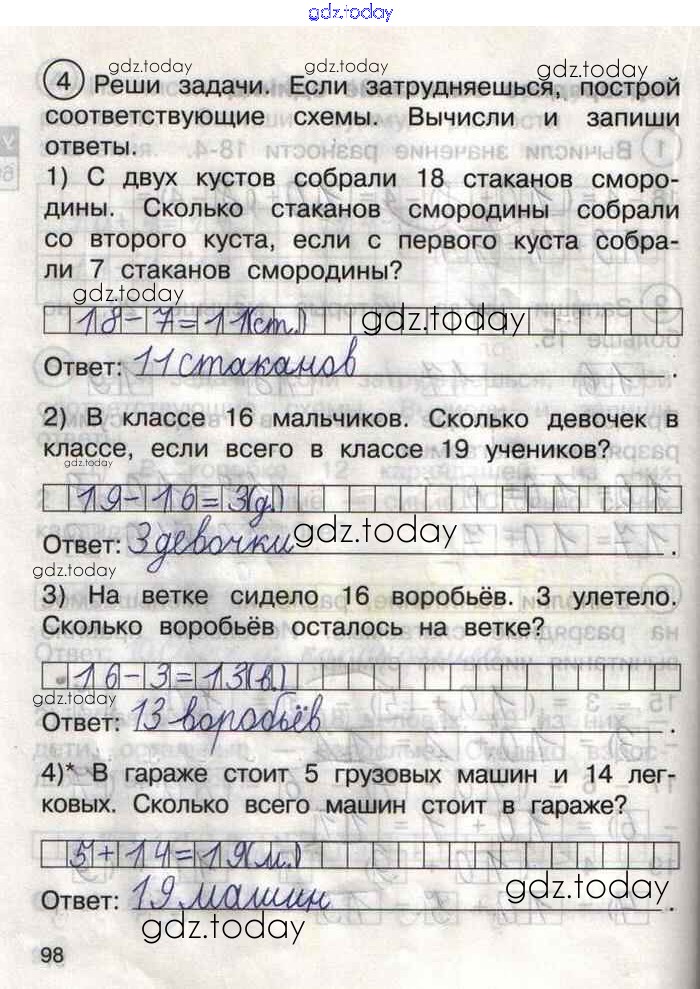 gdz.today
gdz.today gdz.today gdz.today
4 Реши задачи. Если затрудняешься, построй
соответствующие схемы. Вычисли и запиши
ответы.
1) С двух кустов собрали 18 стаканов сморо-
дины. Сколько стаканов смородины собрали
со второго куста, если с первого куста собра-
ли 7 стаканов смородины?
gdz.today
18-7=11(ст.) gdz.today
Ответ: 11 стаканов.
2) В классе 16 мальчиков. Сколько девочек в
классе, если всего в классе 19 учеников?
gdz.today
19-16=3(д.)
Ответ: 3 девочки gdz.today.
gdz.today
3) На ветке сидело 16 воробьёв. 3 улетело.
Сколько воробьёв осталось на ветке?
16-3=13(в.)
gdz.today
Ответ: 13 воробьёв.
4)* В гараже стоит 5 грузовых машин и 14 лег-
ковых. Сколько всего машин стоит в гараже?
5+14=19(м.)
Ответ: 19 машин gdz.today.
gdz.today
98